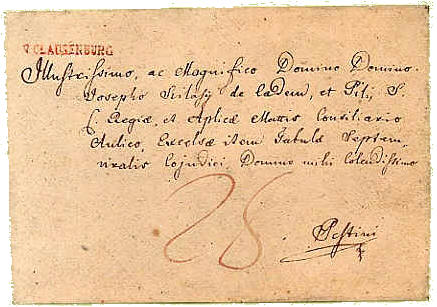 V. CLAUSENBURG
Illustrissimo, ac Magnifico Domino Domino
Josepho Szilasy de eadem, et Pili, S.
C. Regiæ, et Aplicæ Mattis Consiliario
Aulico, Excelsæ item Tabulæ Septem
viralis Cojudici, Domino mihi Colendissimo
25
Pestini